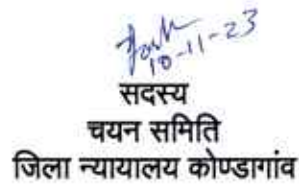 10-11-23
सदस्य
चयन समिति
जिला न्यायालय कोण्डागांव